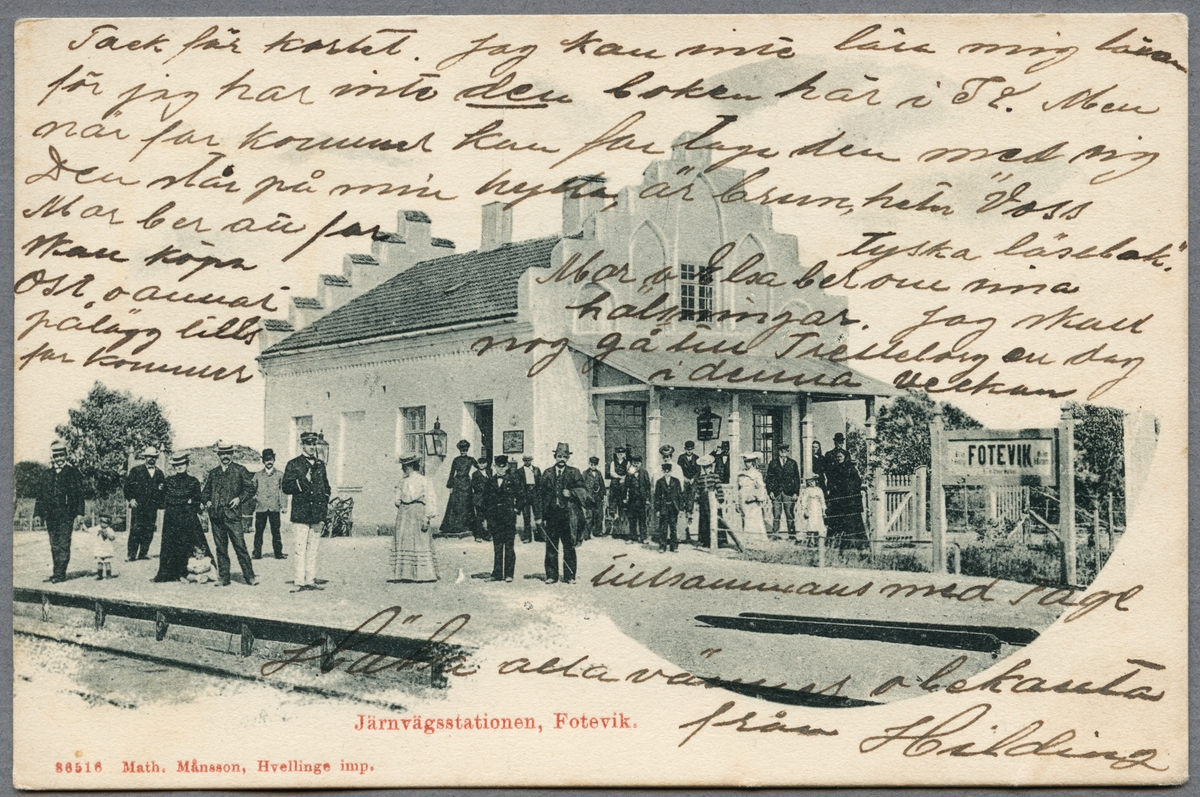 Tack för kortet. Jag kan inte lära mig läxan
för jag har inte den boken här i Tr. Men
när far kommer kan far taga den med sig
Den står på min hylla, är brun, heter Voss
Tyska läsebok."
Mor ber att far
skall köpa
Ost, o annat
pålägg tills
far kommer
Mor o Elsa ber om sina
hälsningar. Jag skall
nog gå till Trelleborg en dag
i denna veckan
tillsammans med
FOTEVIK
Hälsa alla vänner o bekanta
från Hilding
Järnvägsstationen, Fotevik.
86516 Math. Månsson, Hvellinge imp.